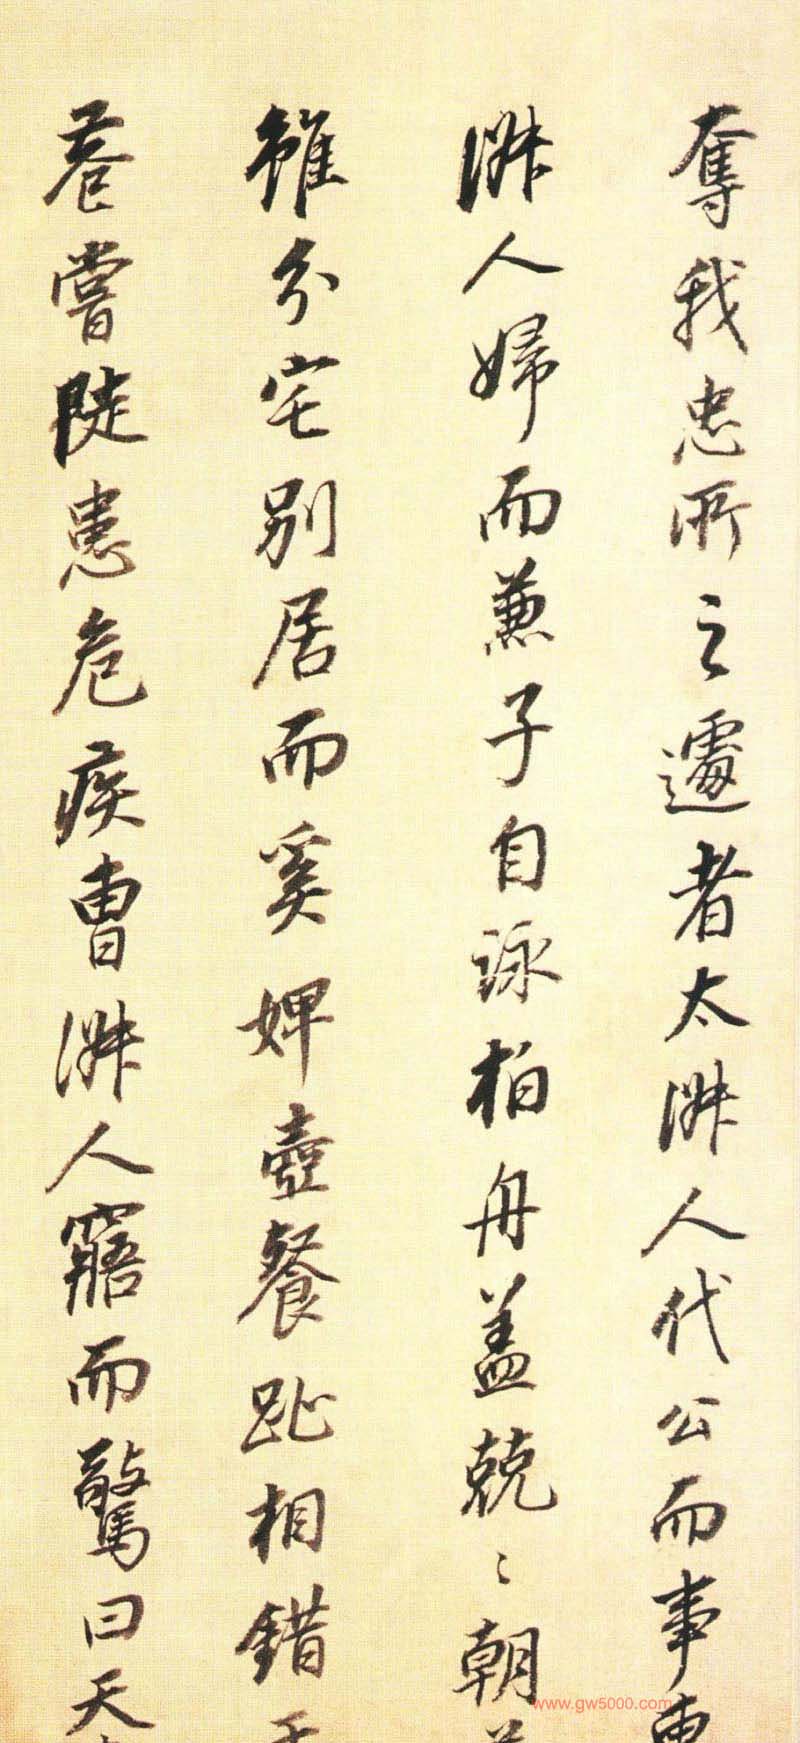 奪我忠所之遽者太淑人代公而事
淑人婦而兼子自詠柏舟蓋兢〻朝
雖分宅別居而奚婢壺餐趾相錯于
巷嘗陡患危疾曹淑人寤而驚曰天
www.gw5000.com